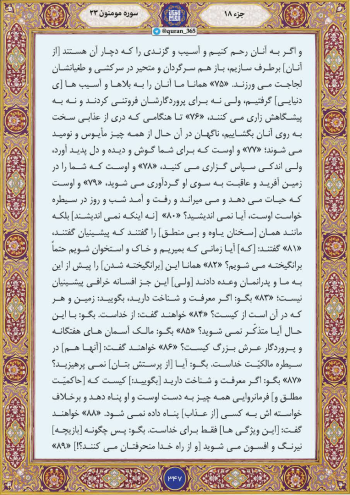 جزء ۱۸
@quran_365
سوره مومنون ۲۳
و اگر به آنان رحم کنیم و آسیب و گزندی را که دچار آن هستند [از
آنان] برطرف سازیم، باز هم سرگردان و متحیر در سرکشی و طغیانشان
لجاجت می ورزند. «۷۵» همانا ما آنان را به بلاها و آسیب ها [ی
دنیایی] گرفتیم، ولی نه برای پروردگارشان فروتنی کردند و نه به
پیشگاهش زاری می کنند، «۷۶» تا هنگامی که دری از عذابی سخت
به روی آنان بگشاییم، ناگهان در آن حال از همه چیز مأیوس و نومید
می شوند؛ «۷۷» و اوست که برای شما گوش و دیده و دل پدید آورد،
ولی اندکی سپاس گزاری می کنید، «۷۸» و اوست که شما را در
زمین آفرید و عاقبت به سوی او گردآوری می شوید، «۷۹» و اوست
که حیات می دهد و می میراند و رفت و آمد شب و روز در سیطره
خواست اوست، آیا نمی اندیشید؟ «۸۰» [نه اینکه نمی اندیشند] بلکه
مانند همان [سخنان یاوه و بی منطق] را گفتند که پیشینیان گفتند،
«۸۱» گفتند: [که] آیا زمانی که بمیریم و خاک و استخوان شویم حتماً
برانگیخته می شویم؟ «۸۲» همانا این [برانگیخته شدن] را پیش از این
به ما و پدرانمان وعده دادند [ولی] این جز افسانه خرافی پیشینیان
نیست؛ «۸۳» بگو: اگر معرفت و شناخت دارید، بگویید: زمین و هر
که در آن است از کیست؟ «۸۴» خواهند گفت: از خداست. بگو: با این
حال آیا متذکّر نمی شوید؟ «۸۵» بگو: مالک آسمان های هفتگانه
و پروردگار عرش بزرگ کیست؟ «۸۶» خواهند گفت: [آنها هم] در
سیطره مالکیّت خداست. بگو: آیا [از پرستش بتان] نمی پرهیزید؟
«۸۷» بگو: اگر معرفت و شناخت دارید [بگویید:] کیست که [حاکمیّت
مطلق و] فرمانروایی همه چیز به دست اوست و او پناه دهد و برخلاف
خواسته اش به کسی [از عذاب] پناه داده نمی شود. «۸۸» خواهند
گفت: [این ویژگی ها] فقط برای خداست. بگو: پس چگونه [بازیچه]
نیرنگ و افسون می شوید [و از راه خدا منحرفتان می کنند؟!] «۸۹»
۳۴۷